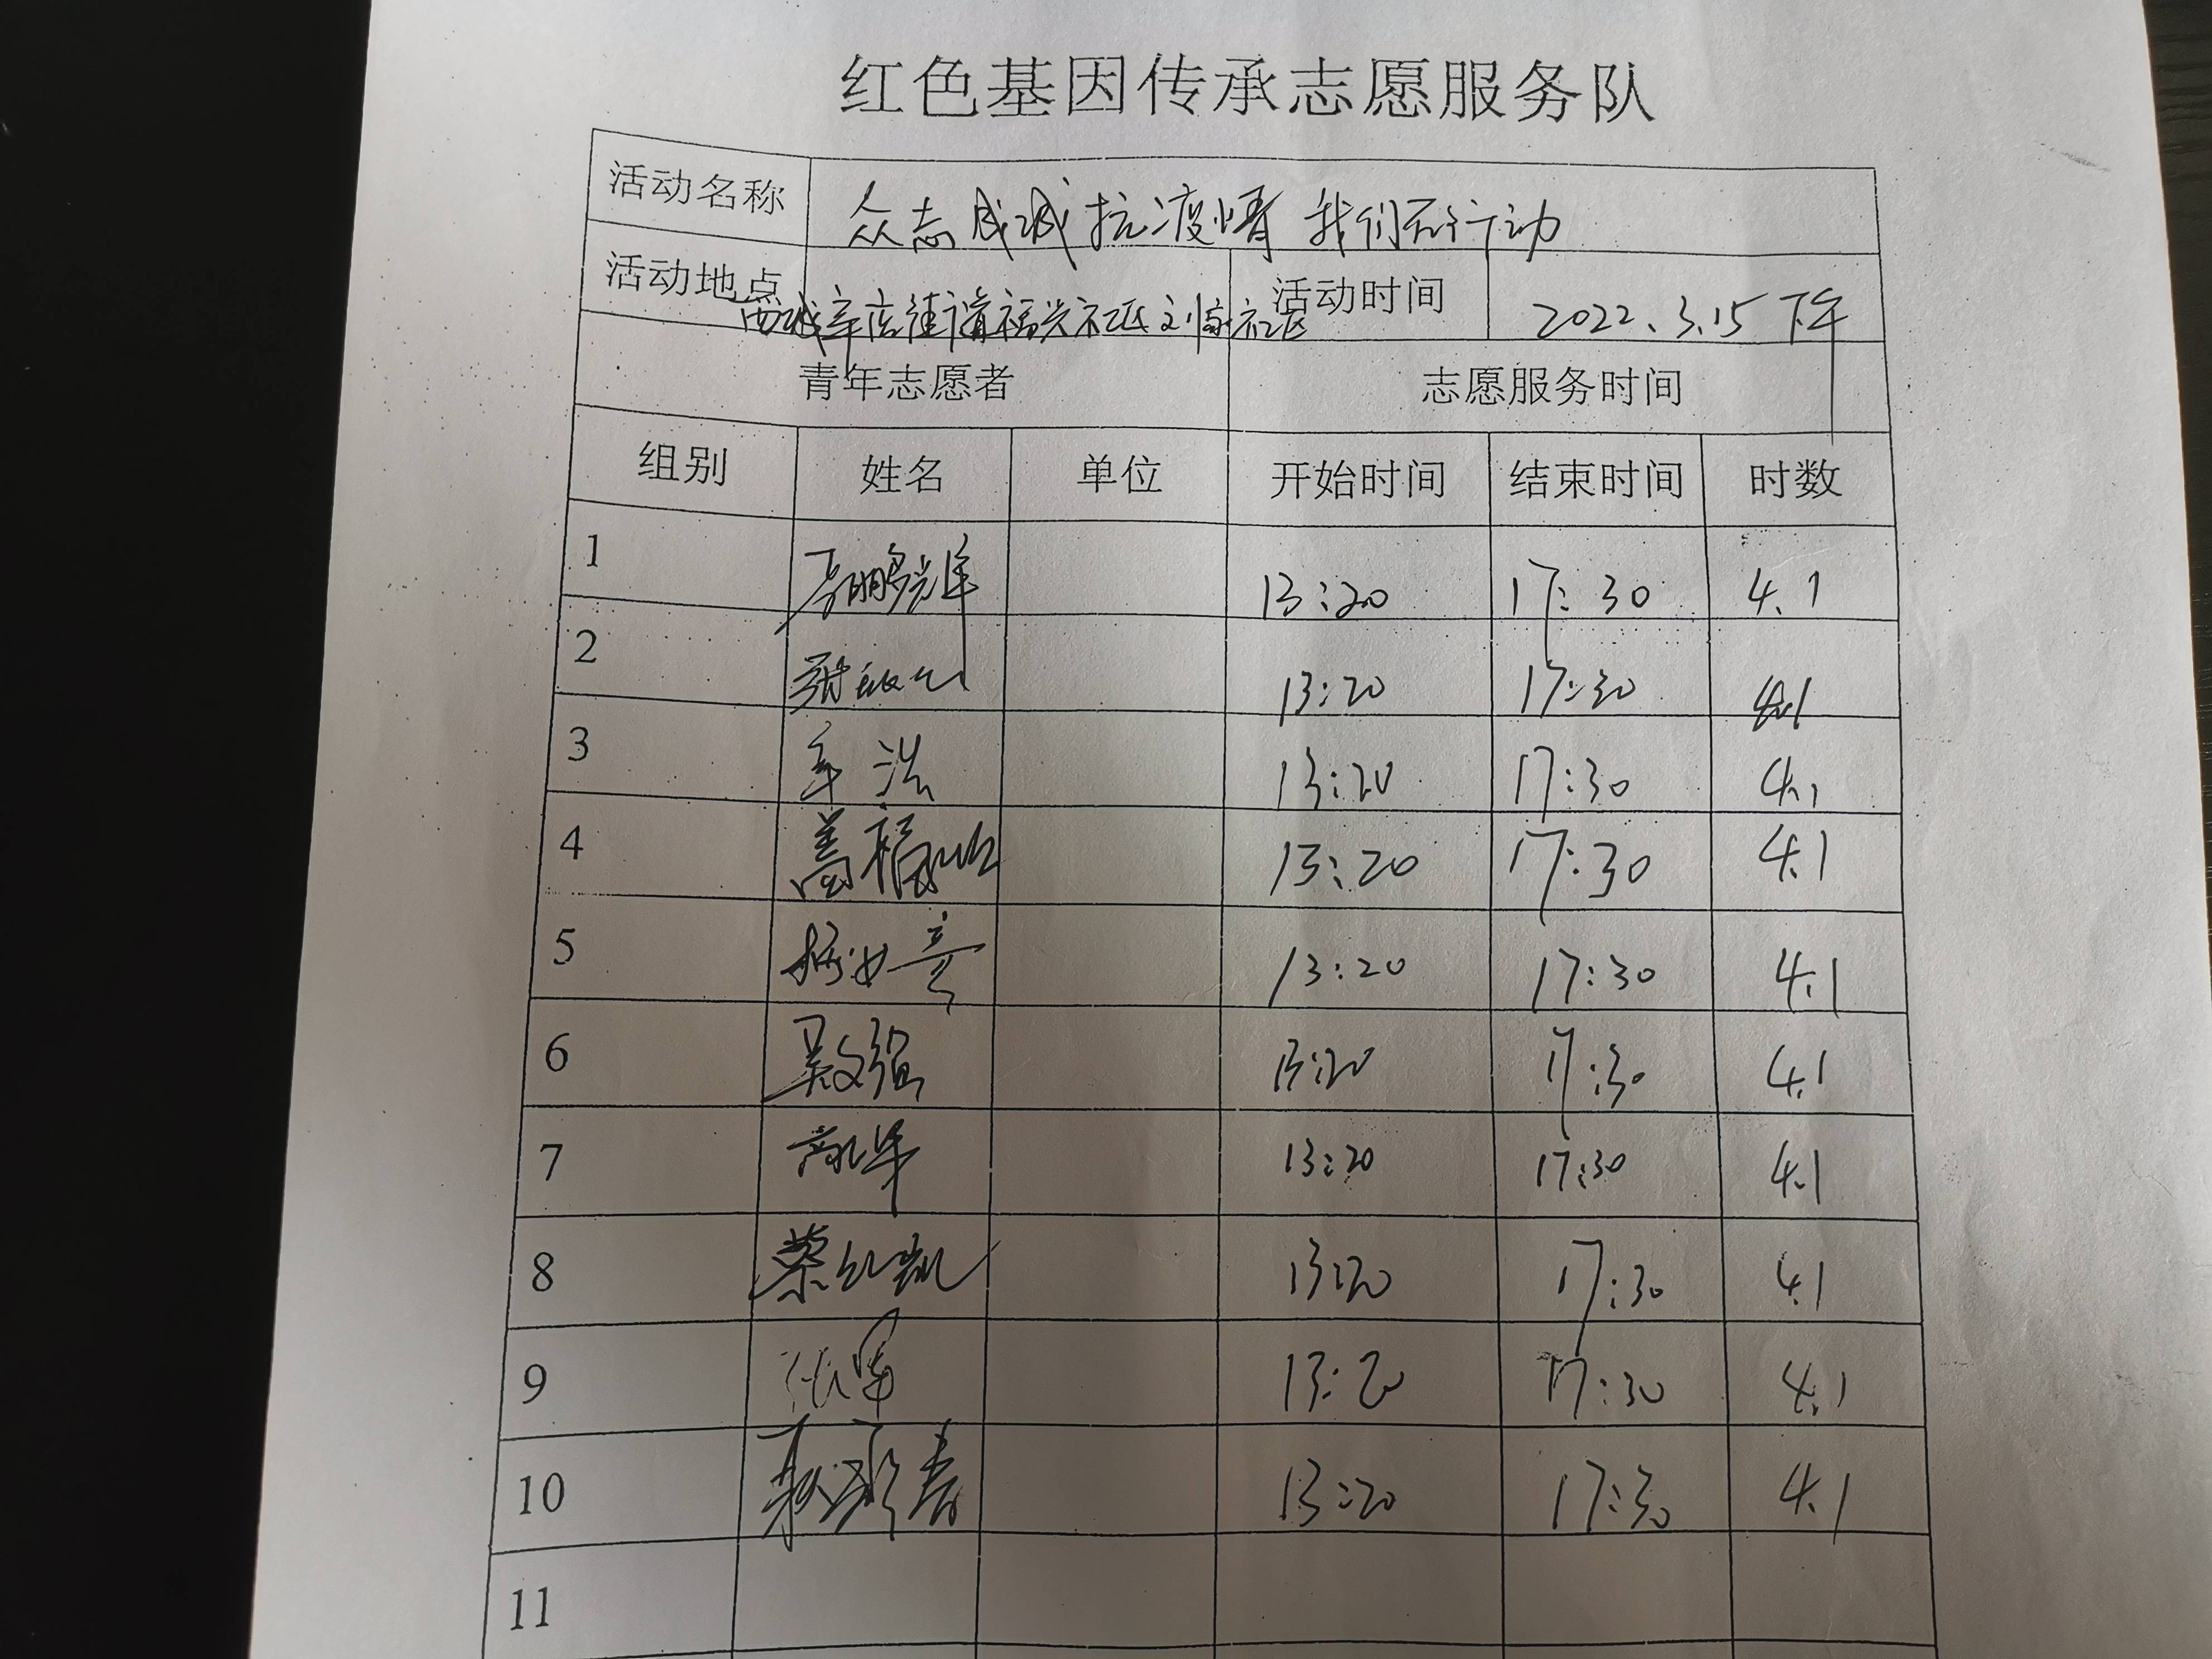 红色基因传承志愿服务队
活动名称 众志成城抗疫情 我们在行动
活动地点 西城辛店街道福兴社区刘家社区 活动时间 2022.3.15 下午
青年志愿者 志愿服务时间
组别 姓名 单位 开始时间 结束时间 时数
1 13:20 17:30 4.1
2 13:20 17:30 4.1
3 辛浩 13:20 17:30 4.1
4 13:20 17:30 4.1
5 13:20 17:30 4.1
6 吴文强 13:20 17:30 4.1
7 13:20 17:30 4.1
8 13:20 17:30 4.1
9 13:20 17:30 4.1
10 13:20 17:30 4.1
11